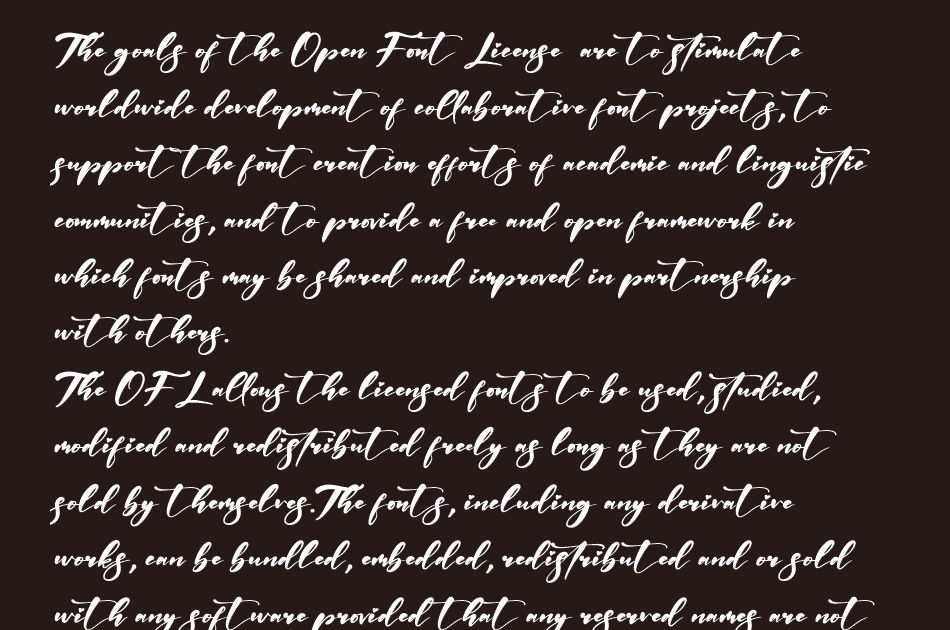 The goals of the Open Font License are to stimulate
worldwide development of collaborative font projects, to
support the font creation efforts of academic and linguistic
communities, and to provide a free and open framework in
which fonts may be shared and improved in partnership
with others.
The OFL allows the licensed fonts to be used, studied,
modified and redistributed freely as long as they are not
sold by themselves. The fonts, including any derivative
works, can be bundled, embedded, redistributed and or sold
with any software provided that any reserved names are not